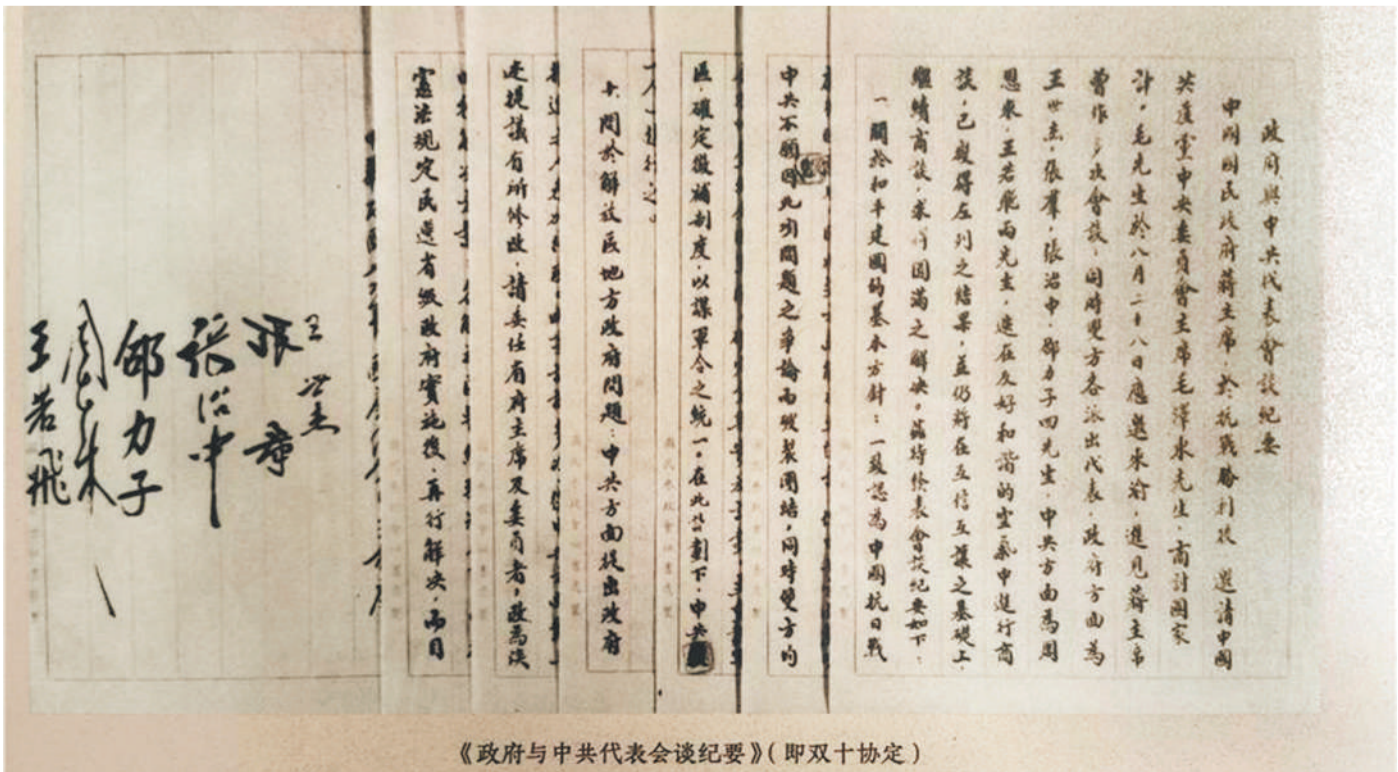 政府與中共代表會談紀要
中國國民政府蔣主席於抗戰勝利後邀請中國
共產黨中央委員會主席毛澤東先生，商討國家
計，毛先生於八月二十八日應邀來渝，進見蔣主席
曾作多次會談，同時雙方各派出代表，政府方面為
王世杰，張羣，張治中，邵力子四先生，中共方面為周
恩來，王若飛兩先生，迭在友好和諧的空氣中進行商
談，已獲得左列之結果，並仍將在互信互讓之基礎上，
繼續商談，求得圓滿之解決，茲特發表會談紀要如下：
一關於和平建國的基本方針：一致認為中國抗日戰
中共不願因此項問題之爭論而破裂團結，同時雙方均
區，確定徵補制度，以謀軍令之統一。在此計劃下，中共
十、關於解放區地方政府問題：中共方面提出政府
迭提議有所修改，請委任省府主席及委員者，改為陝
憲法規定民選省級政府實施後，再行解決，而目
王世杰
張羣
張治中
邵力子
周恩來
王若飛
《政府与中共代表会谈纪要》(即双十协定)